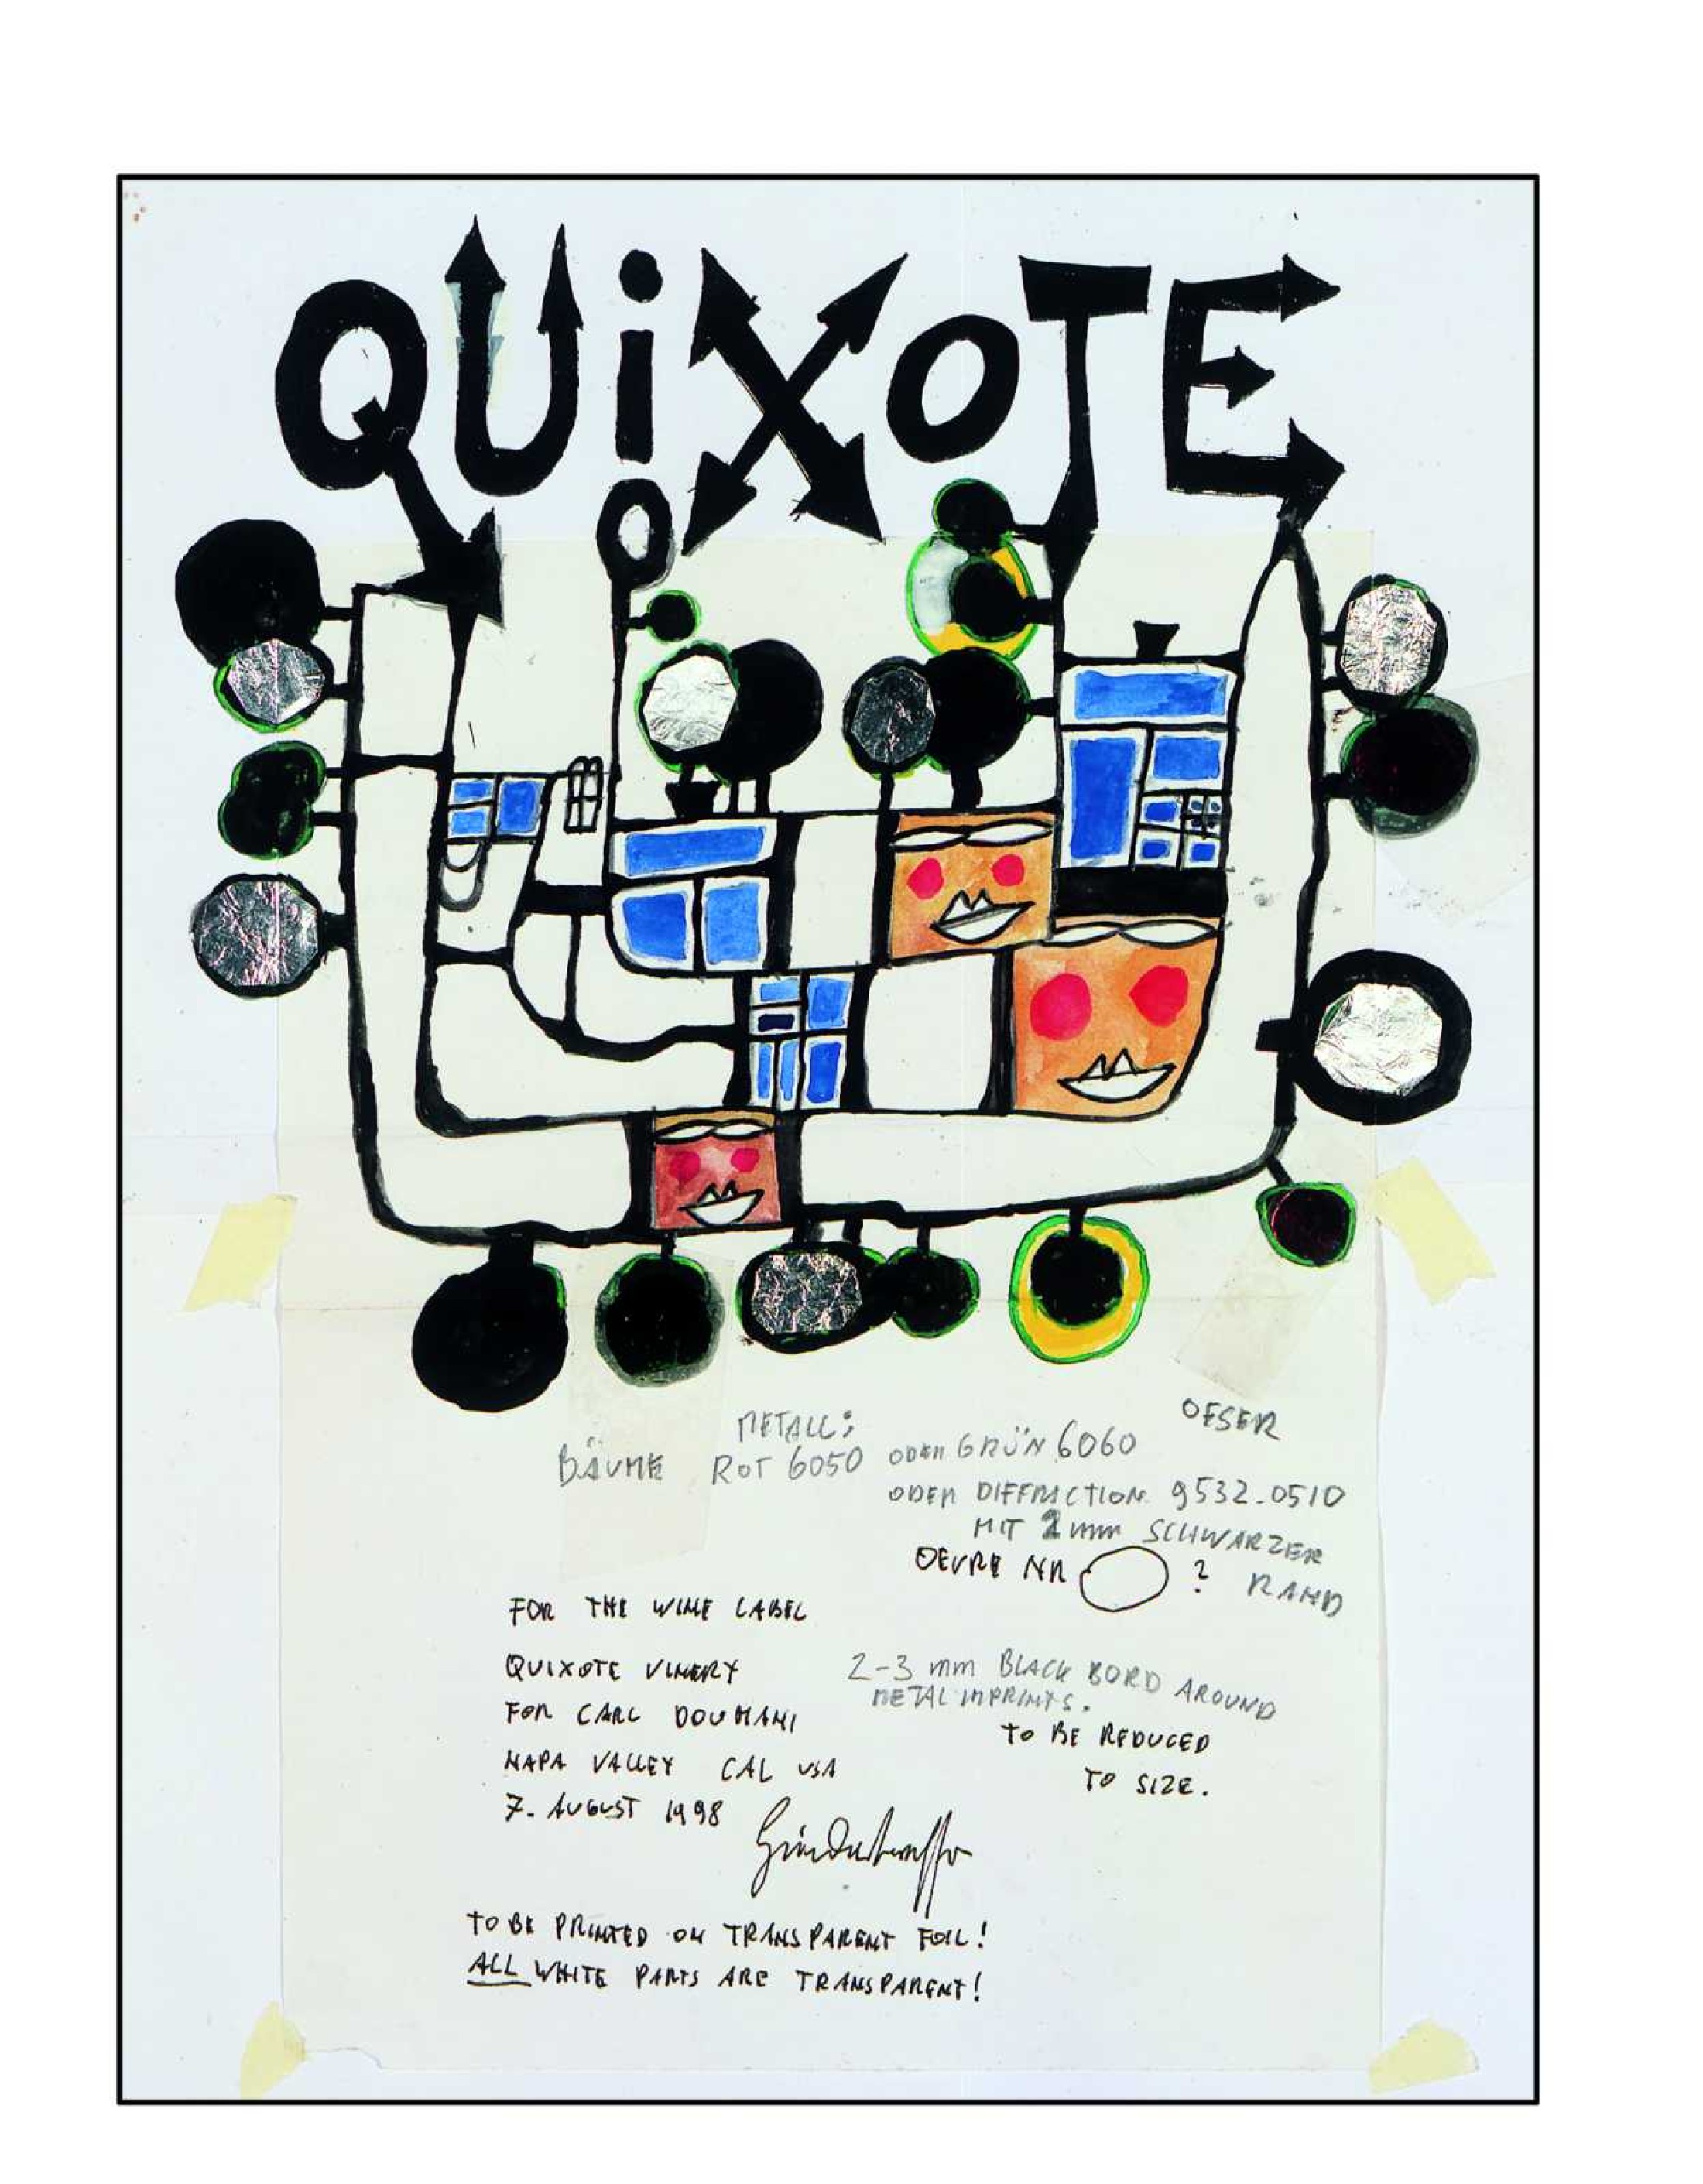 QUiXOTE
METALL: OESER
BÄUME ROT 6050 ODER GRÜN 6060
ODER DIFFRACTION 9532-0510
MIT 2 mm SCHWARZER
RAND
OEVRE NR ?
FOR THE WINE LABEL
QUIXOTE VINERY
FOR CARL DOUMANI
NAPA VALLEY CAL USA
7. AUGUST 1998
2-3 mm BLACK BORD AROUND
METAL IMPRINTS.
TO BE REDUCED
TO SIZE.
TO BE PRINTED ON TRANSPARENT FOIL!
ALL WHITE PARTS ARE TRANSPARENT!